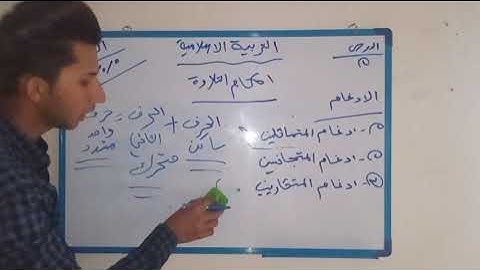 الدرس
التربية الاسلامية
احكام التلاوة
الادغام
١- ادغام المتماثلين
٢- ادغام المتجانسين
٣- ادغام المتقاربين
الحرف + الحرف = حرف
ساكن
الثاني
متحرك
واحد
مشدد